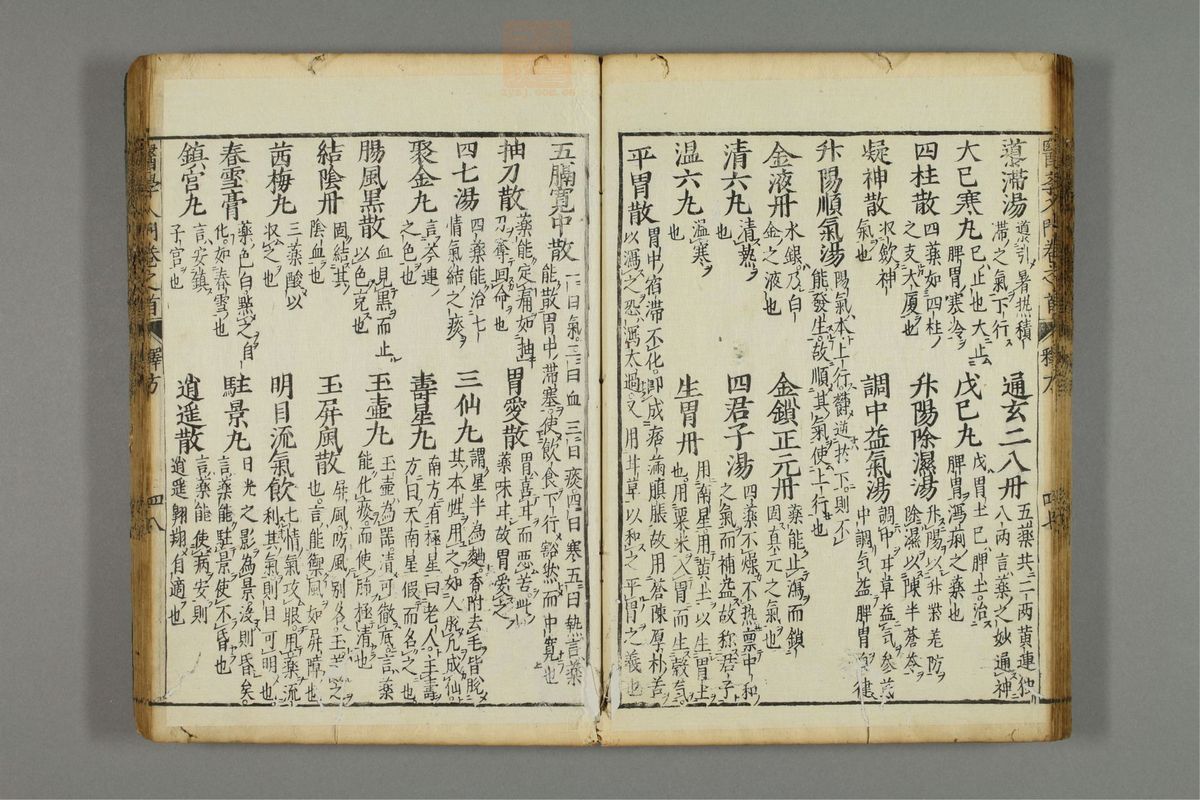 導滯湯 導引暑熱積滯之氣下行
通玄二八丹 五藥共二十兩黃連獨八兩言藥之妙通神
大已寒丸 已止也大止脾胃寒冷
戊己丸 戊胃土己脾土治脾胃瀉痢之藥也
四柱散 四藥如四柱之支大厦也
升陽除濕湯 升陽以升柴羌防除濕以陳半蒼苓
凝神散 收飲神氣也
調中益氣湯 調中甘草益氣參芪中調氣益脾胃自健
升陽順氣湯 陽氣本上行欝遏於下則不能發生故順其氣使上行也
金液丹 水銀乃白金之液也
金鎖正元丹 藥能止瀉而鎖固真元之氣也
清六丸 清熱也
四君子湯 四藥不燥不熱禀中和之氣而補益故稱君子
温六丸 温寒也
生胃丹 用南星用黃土以生胃土也用粟米入胃而生穀氣
平胃散 胃中宿滯不化即成痞滿䐜脹故用蒼陳厚朴苦以瀉之恐瀉太過又用甘草以和之平胃之義也
醫學入門卷之首 釋方
五膈寬中散 一曰氣二曰血三曰痰四曰寒五曰熱言藥能散胃中滯塞使飲食下行豁然而中寬也
抽刀散 藥能定痛如抽刀奪回命也
胃愛散 胃喜甘而惡苦此藥味甘故胃愛之
四七湯 四藥能治七情氣結之痰
三仙丸 謂星半為麯香附去毛皆脫其本性用之如人脫凡成仙
聚金丸 言芩連之色也
壽星丸 南方有極星曰老人主壽方曰天南星假而名之也
腸風黑散 血見黑而止以色克也
玉壷丸 玉壷為器清可徹底言藥能化痰而使肺極清也
結陰丹 固結其陰血也
玉屏風散 屏風防風別名玉芪之也言能禦風如屏障也
茜梅丸 三藥酸以收之也
明目流氣飲 七情氣攻眼用藥流利其氣則目可明也
春雪膏 藥色白點之自化如春雪也
駐景丸 日光之影為景沒則昏矣言藥能駐景使不昏也
鎮宮丸 言安鎮子宮也
逍遥散 言藥能使病安則逍遥翺翔自適也
醫學入門卷之首 釋方 四八